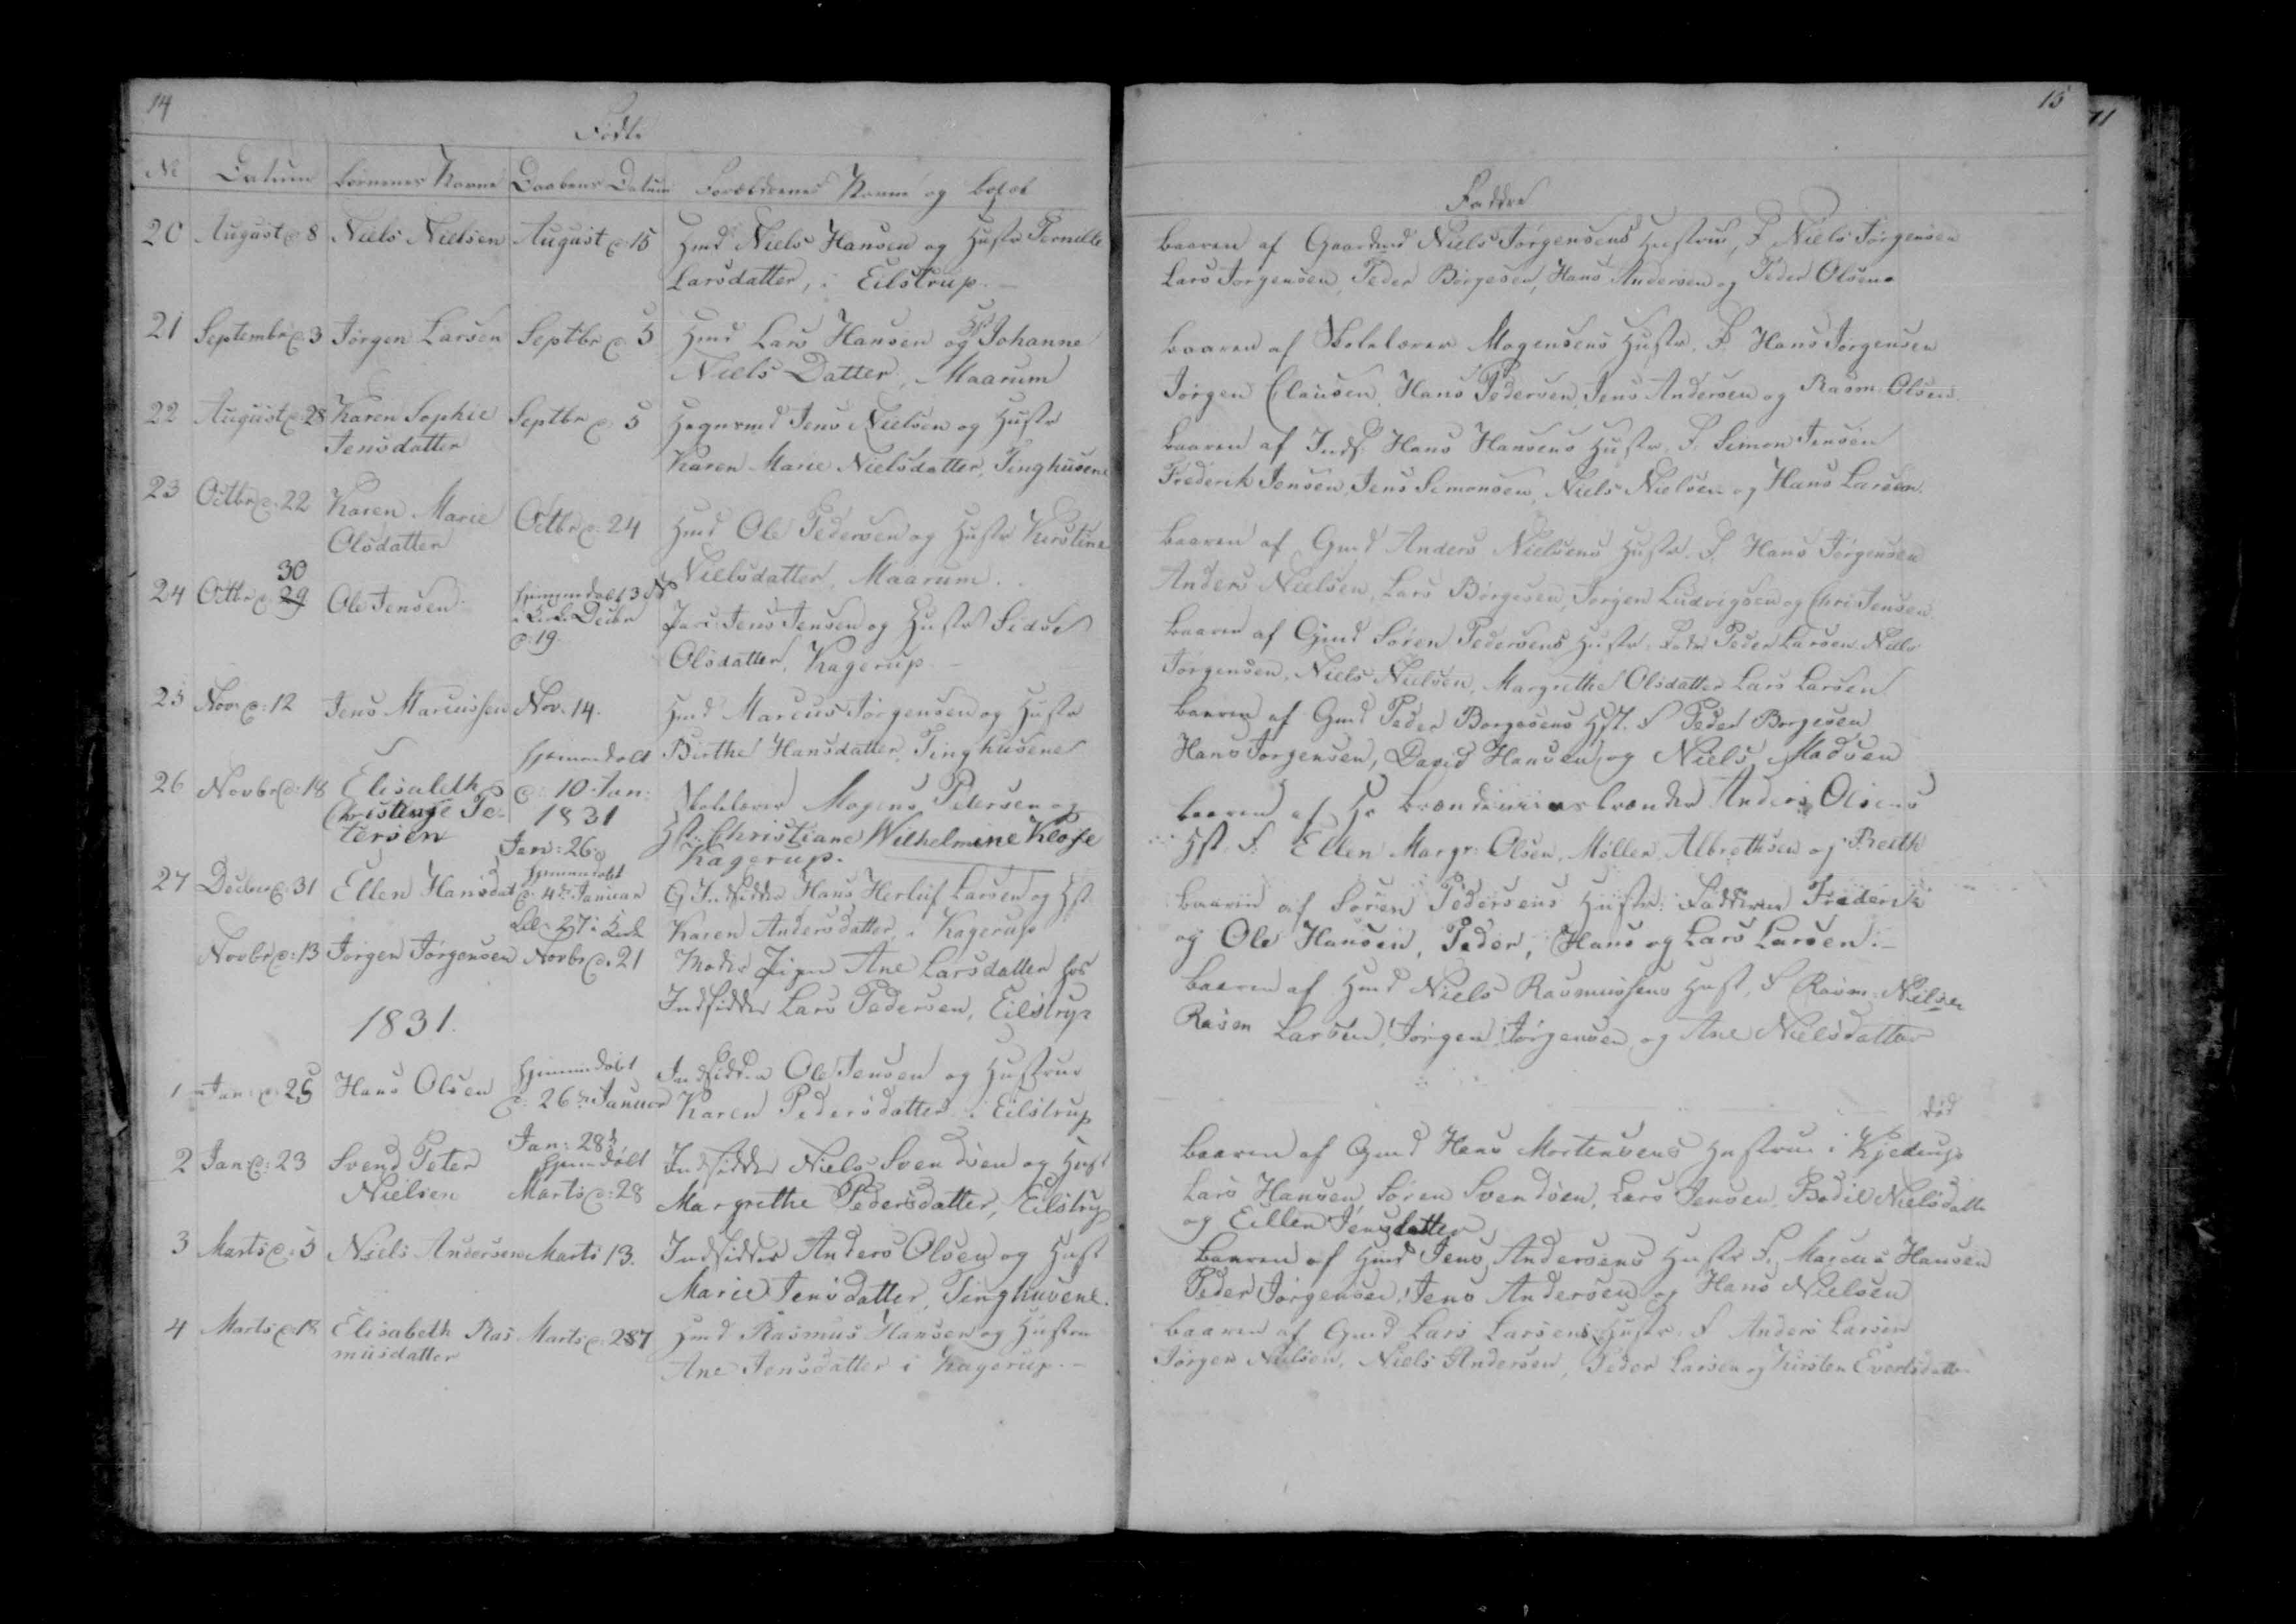 14
Fødte
No Datum Børnenes Navne Daabens Datum Forældrenes Navne og Bopæl
20 August d. 8 Niels Nielsen August d. 15 Hmd Niels Hansen og Hustr Pernille
Larsdatter, i Eilstrup. –
21 Septembr d. 3 Jørgen Larsen Septbr d. 5 Hmd Lars Hansen og Hst Johanne
Niels Datter, Maarum
22 August d. 28 Karen Sophie Septbr d. 5 Hegnsmd Jens Nielsen og Hustr
Jensdatter Karen Marie Nielsdatter, Tinghusene
23 Octbr d. 22 Karen Marie Octbr d. 24 Hmd Ole Pedersen og Hustr Kirstine
Olsdatter Nielsdatter, Maarum.
30
24 Octbr d. 29 Ole Jensen hjemmedøbt 3 Jens Jensen og Hustr Sidse
i Kirke Decbr
d. 19. Olsdatter, Kagerup –
25 Nov. d. 12 Jens Marcussen Nov. 14. Hmd Marcus Jørgensen og Hustr
Birthe Hansdatter, Tinghusene
hjemmedøbt
26 Novbr d. 18 Elisabeth d. 10 Jan: Skolelærer Mogens Petersen og
Christiage Pe- 1831 Hst: Christiane Wilhelmine Klose
tersen Jan: 26 Kagerup.
hjemmedøbt
27 Decbr d. 31 Ellen Hansdat d. 4de Januar Indsidder Hans Herluf Larsen og Hst
27 i Kirk Karen Andersdatter, i Kagerup
Novbr d. 13 Jørgen Jørgensen Novbr d. 21 Moder Pigen Ane Larsdatter hos
Indsidder Lars Pedersen, Eilstrup
1831.
1 Jan: d. 25 Hans Olsen hjemmedøbt Indsidder Ole Jensen og Hustrue
d. 26de Januar Karen Pedersdatter i Eilstrup
2 Jan d. 23 Svend Peter Jan: 28 Indsidder Niels Svendsen og Hust
hjemdøbt
Nielsen Marts d. 28 Margrethe Pedersdatter, Eilstrup
3 Marts d. 5 Niels Andersen Marts 13. Indsidder Anders Olsen og Hust
Marie Jensdatter, Tinghusene.
4 Marts d. 18 Elisabeth Ras Marts d. 287 Hmd Rasmus Hansen og Hustru
musdatter Ane Jensdatter i Kagerup. –
15
11
Faddere
baaren af Gaardmd Niels Jørgensens Hustrue, F. Niels Jørgensen
Lars Jorgensen, Peder Børgesen, Hans Andersen og Peder Olsen
baaren af Skolelærer Mogensens Hustr. F. Hans Jørgensen
Jørgen Clausen, Hans Pedersen, Jens Andersen og Rasm. Olsen.
baaren af Inds. Hans Hansens Hustr. F. Simon Jensen
Frederik Jensen, Jens Simonsen, Niels Nielsen og Hans Larsen.
baaren af Gmd Anders Nielsens Hustr. F. Hans Jørgensen
Anders Nielsen, Lars Børgesen, Jørgen Ludvigsen og Chri Jensen.
baaren af Gmd Søren Pedersens Hustr. Peder Larsen Niels
Jørgensen, Niels Nielsen, Margrethe Olsdatter Lars Larsen
baaren af Gmd Peder Borgesens Hst. F Peder Borgesen
Hans Jorgensen, David Hansen og Niels Madsen
baaren af Hr Anders Olsens
Hst. F: Ellen Margr: Olsen, Møller Albrethsen og
baaren af Søren Pedersens Hustr: Faddere Frederik
og Ole Hansen, Peder, Hans og Lars Larsen. –
baaren af Hmd Niels Rasmussens Hust, F Rasm: Nielsen
Larsen, Jørgen Jørgensen og Ane Nielsdatter
død
baaren af Gmd Hans Mortensens Hustrue i
Lars Hansen, Søren Svendsen, Lars Jensen, Bodil Nielsdatter
og Eillen Jensdatter
baaren af Hmd Jens Andersens Hustr F. Marcus Hansen
Peder Jørgensen, Jens Andersen og Hans Nielsen
baaren af Gmd Lars Larsens Hustr. F Anders Larsen
Jørgen Nielsen, Niels Andersen, Peder Larsen og Kirsten Evertsdatter